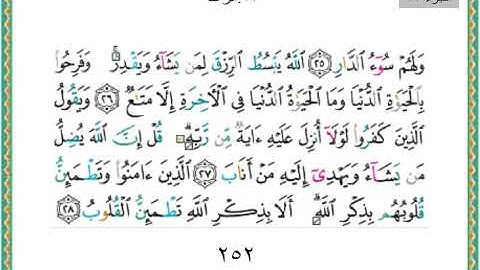 وَلَهُمْ سُوٓءُ ٱلدَّارِ ٢٥ ٱللَّهُ يَبْسُطُ ٱلرِّزْقَ لِمَن يَشَآءُ وَيَقْدِرُ ۚ وَفَرِحُوا۟
بِٱلْحَيَوٰةِ ٱلدُّنْيَا وَمَا ٱلْحَيَوٰةُ ٱلدُّنْيَا فِى ٱلْـَٔاخِرَةِ إِلَّا مَتَـٰعٌ ٢٦ وَيَقُولُ
ٱلَّذِينَ كَفَرُوا۟ لَوْلَآ أُنزِلَ عَلَيْهِ ءَايَةٌ مِّن رَّبِّهِۦ ۗ قُلْ إِنَّ ٱللَّهَ يُضِلُّ
مَن يَشَآءُ وَيَهْدِىٓ إِلَيْهِ مَنْ أَنَابَ ٢٧ ٱلَّذِينَ ءَامَنُوا۟ وَتَطْمَئِنُّ
قُلُوبُهُم بِذِكْرِ ٱللَّهِ ۗ أَلَا بِذِكْرِ ٱللَّهِ تَطْمَئِنُّ ٱلْقُلُوبُ ٢٨
٢٥٢